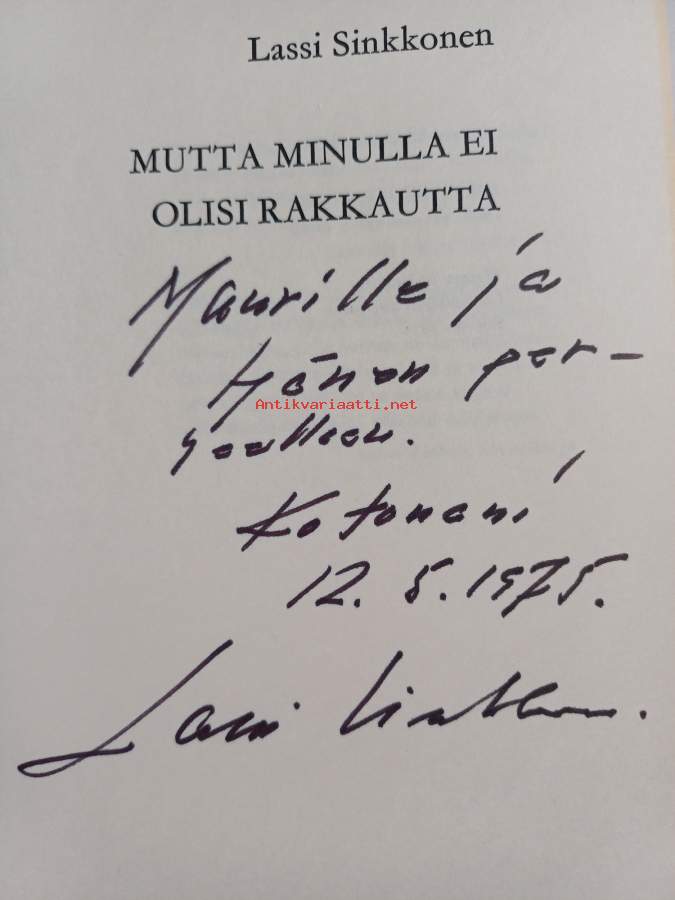 Lassi Sinkkonen
MUTTA MINULLA EI
OLISI RAKKAUTTA
Maurille ja
Hänen per-
heelleen.
Antikvariaatti.net
Kotonani
12. 5. 1975.
Lassi Sinkkonen.